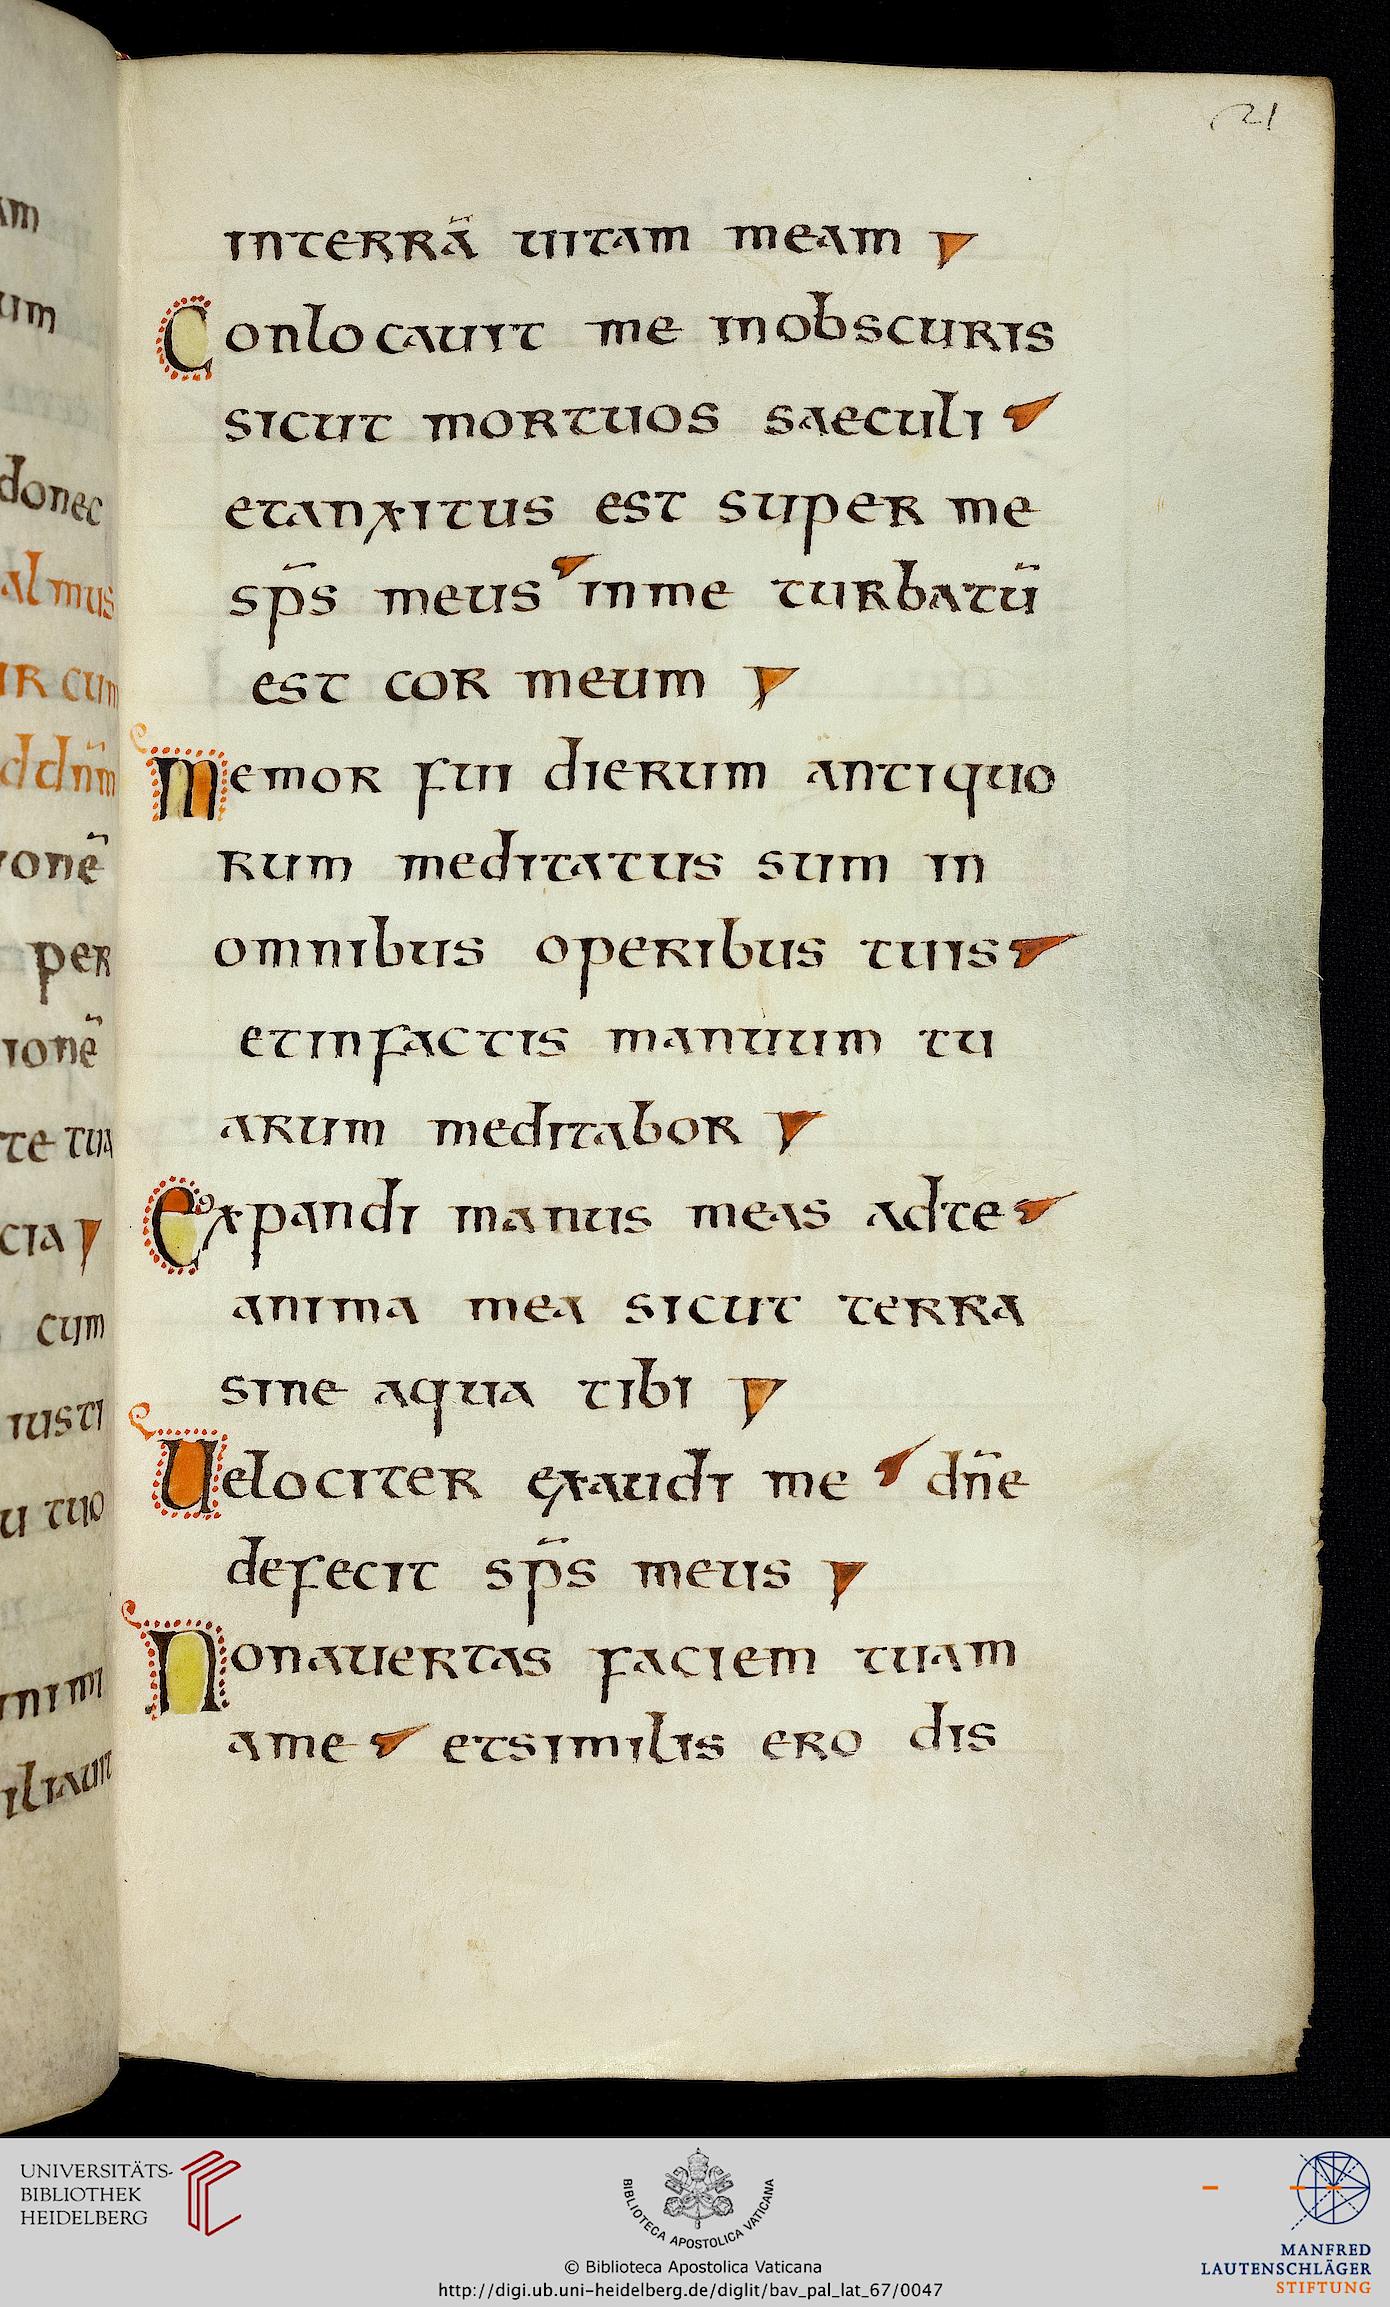 21
interrā uitam meam
Conlocauit me inobscuris
sicut mortuos saeculi
etanxitus est super me
sp̄s meus inme turbatū
est cor meum
Memor fui dierum antiquo
rum meditatus sum in
omnibus operibus tuis
etinfactis manuum tu
arum meditabor
Expandi manus meas adte
anima mea sicut terra
sine aqua tibi
Uelociter exaudi me dn̄e
defecit sp̄s meus
Nonauertas faciem tuam
ame etsimilis ero dis
am
um
donec
almus
ur cum
ddn̄m
onē
per
ionē
te tua
cia
cum
iusti
u tuo
inimi
iliauit
UNIVERSITÄTS-
BIBLIOTHEK
HEIDELBERG
BIBLIOTECA APOSTOLICA VATICANA
© Biblioteca Apostolica Vaticana
http://digi.ub.uni-heidelberg.de/diglit/bav_pal_lat_67/0047
MANFRED
LAUTENSCHLÄGER
STIFTUNG